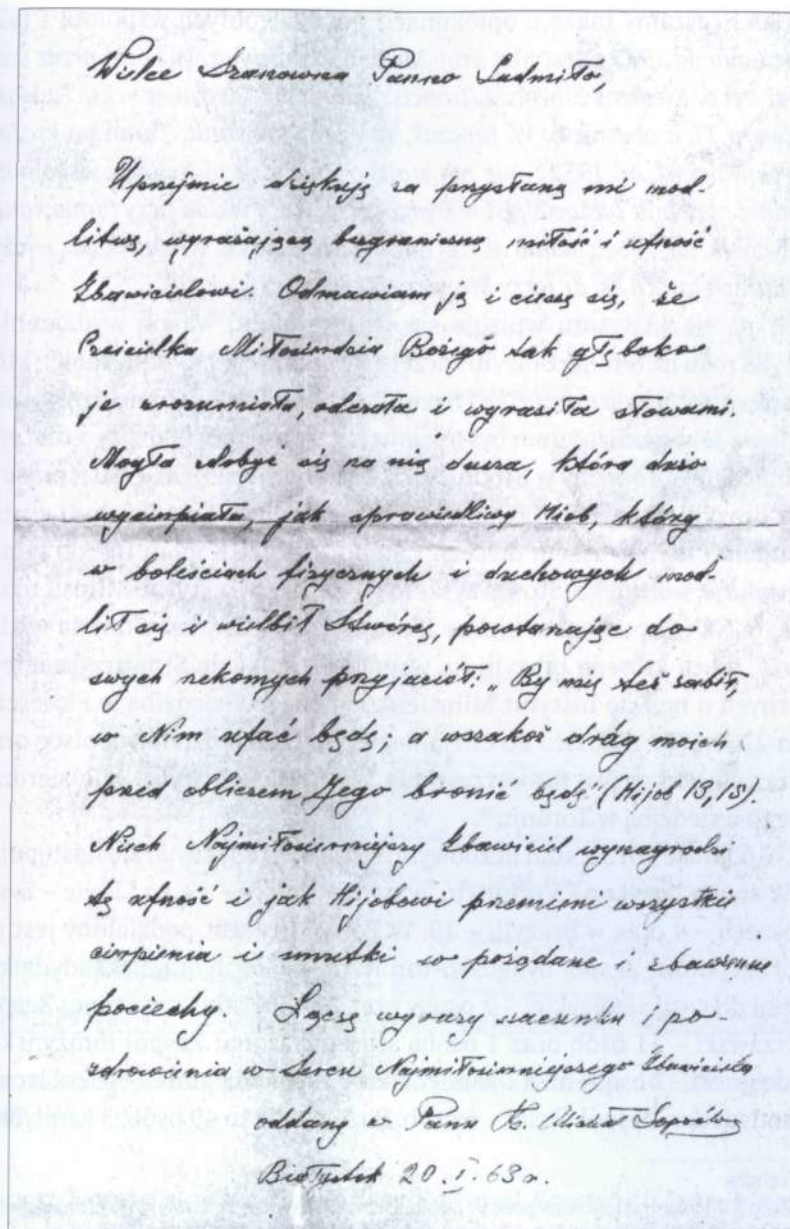 Wielce Szanowna Panno Ludmiło,
Uprzejmie dziękuję za przysłaną mi mod-
litwę, wyrażającą bezgraniczną miłość i ufność
Zbawicielowi. Odmawiam ją i cieszę się, że
Czcicielka Miłosierdzia Bożego tak głęboko
je zrozumiała, odczuła i wyraziła słowami.
Mogła zdobyć się na nią dusza, która dużo
wycierpiała, jak sprawiedliwy Hiob, który
w boleściach fizycznych i duchowych mod-
lił się i wielbił Stwórcę, powtarzając do
swych rzekomych przyjaciół: „By mię też zabił,
w Nim ufać będę; a wszakoż dróg moich
przed obliczem Jego bronić będę" (Hijob 13,15).
Niech Najmiłosierniejszy Zbawiciel wynagrodzi
tę ufność i jak Hijobowi przemieni wszystkie
cierpienia i smutki w pożądane i zbawienne
pociechy. Łączę wyrazy szacunku i po-
zdrowienia w Sercu Najmiłosierniejszego Zbawiciela
oddany w Panu Ks. Michał Sopoćko
Białystok 20.I.63 r.